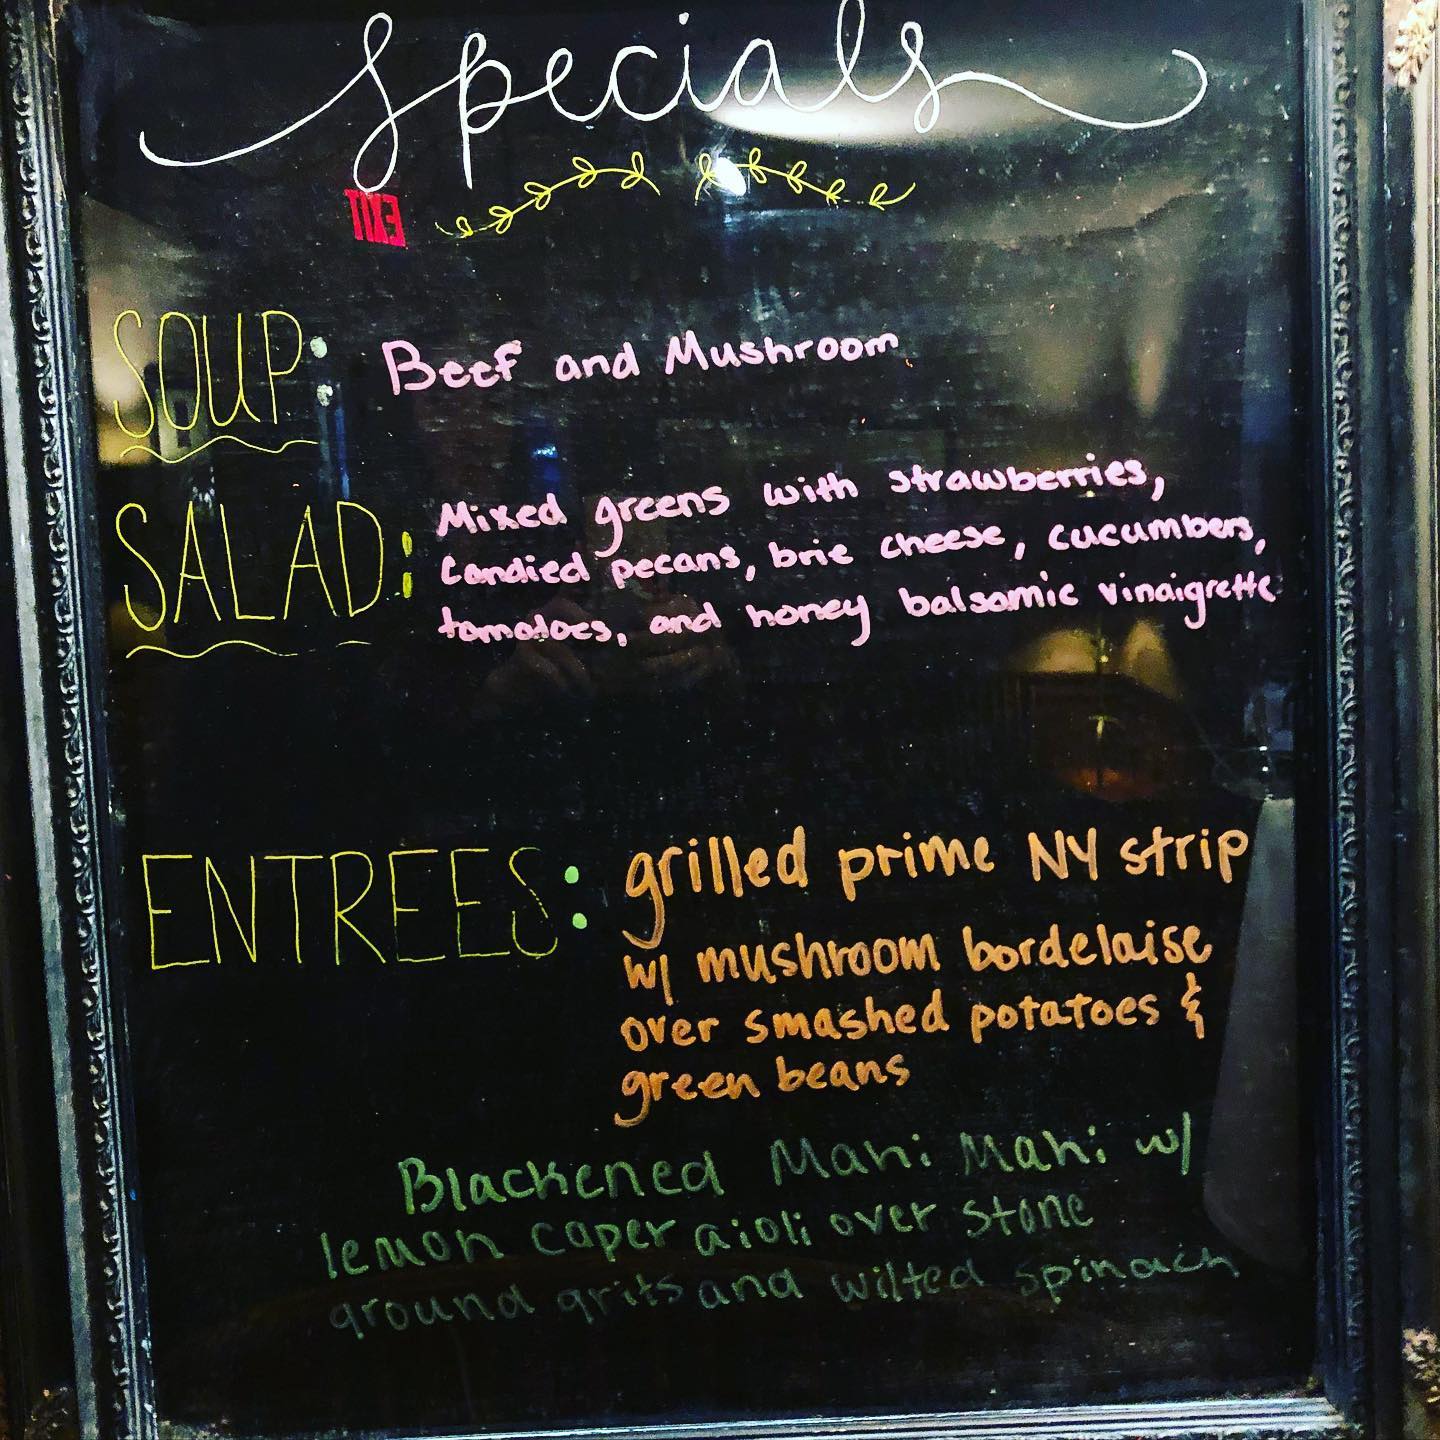 Specials
EXIT
SOUP: Beef and Mushroom
SALAD: Mixed greens with strawberries,
Candied pecans, brie cheese, cucumbers,
tomatoes, and honey balsamic vinaigrette
ENTREES: grilled prime NY strip
w/ mushroom bordelaise
over smashed potatoes &
green beans
Blackened Mahi Mahi w/
lemon caper aioli over stone
ground grits and wilted spinach